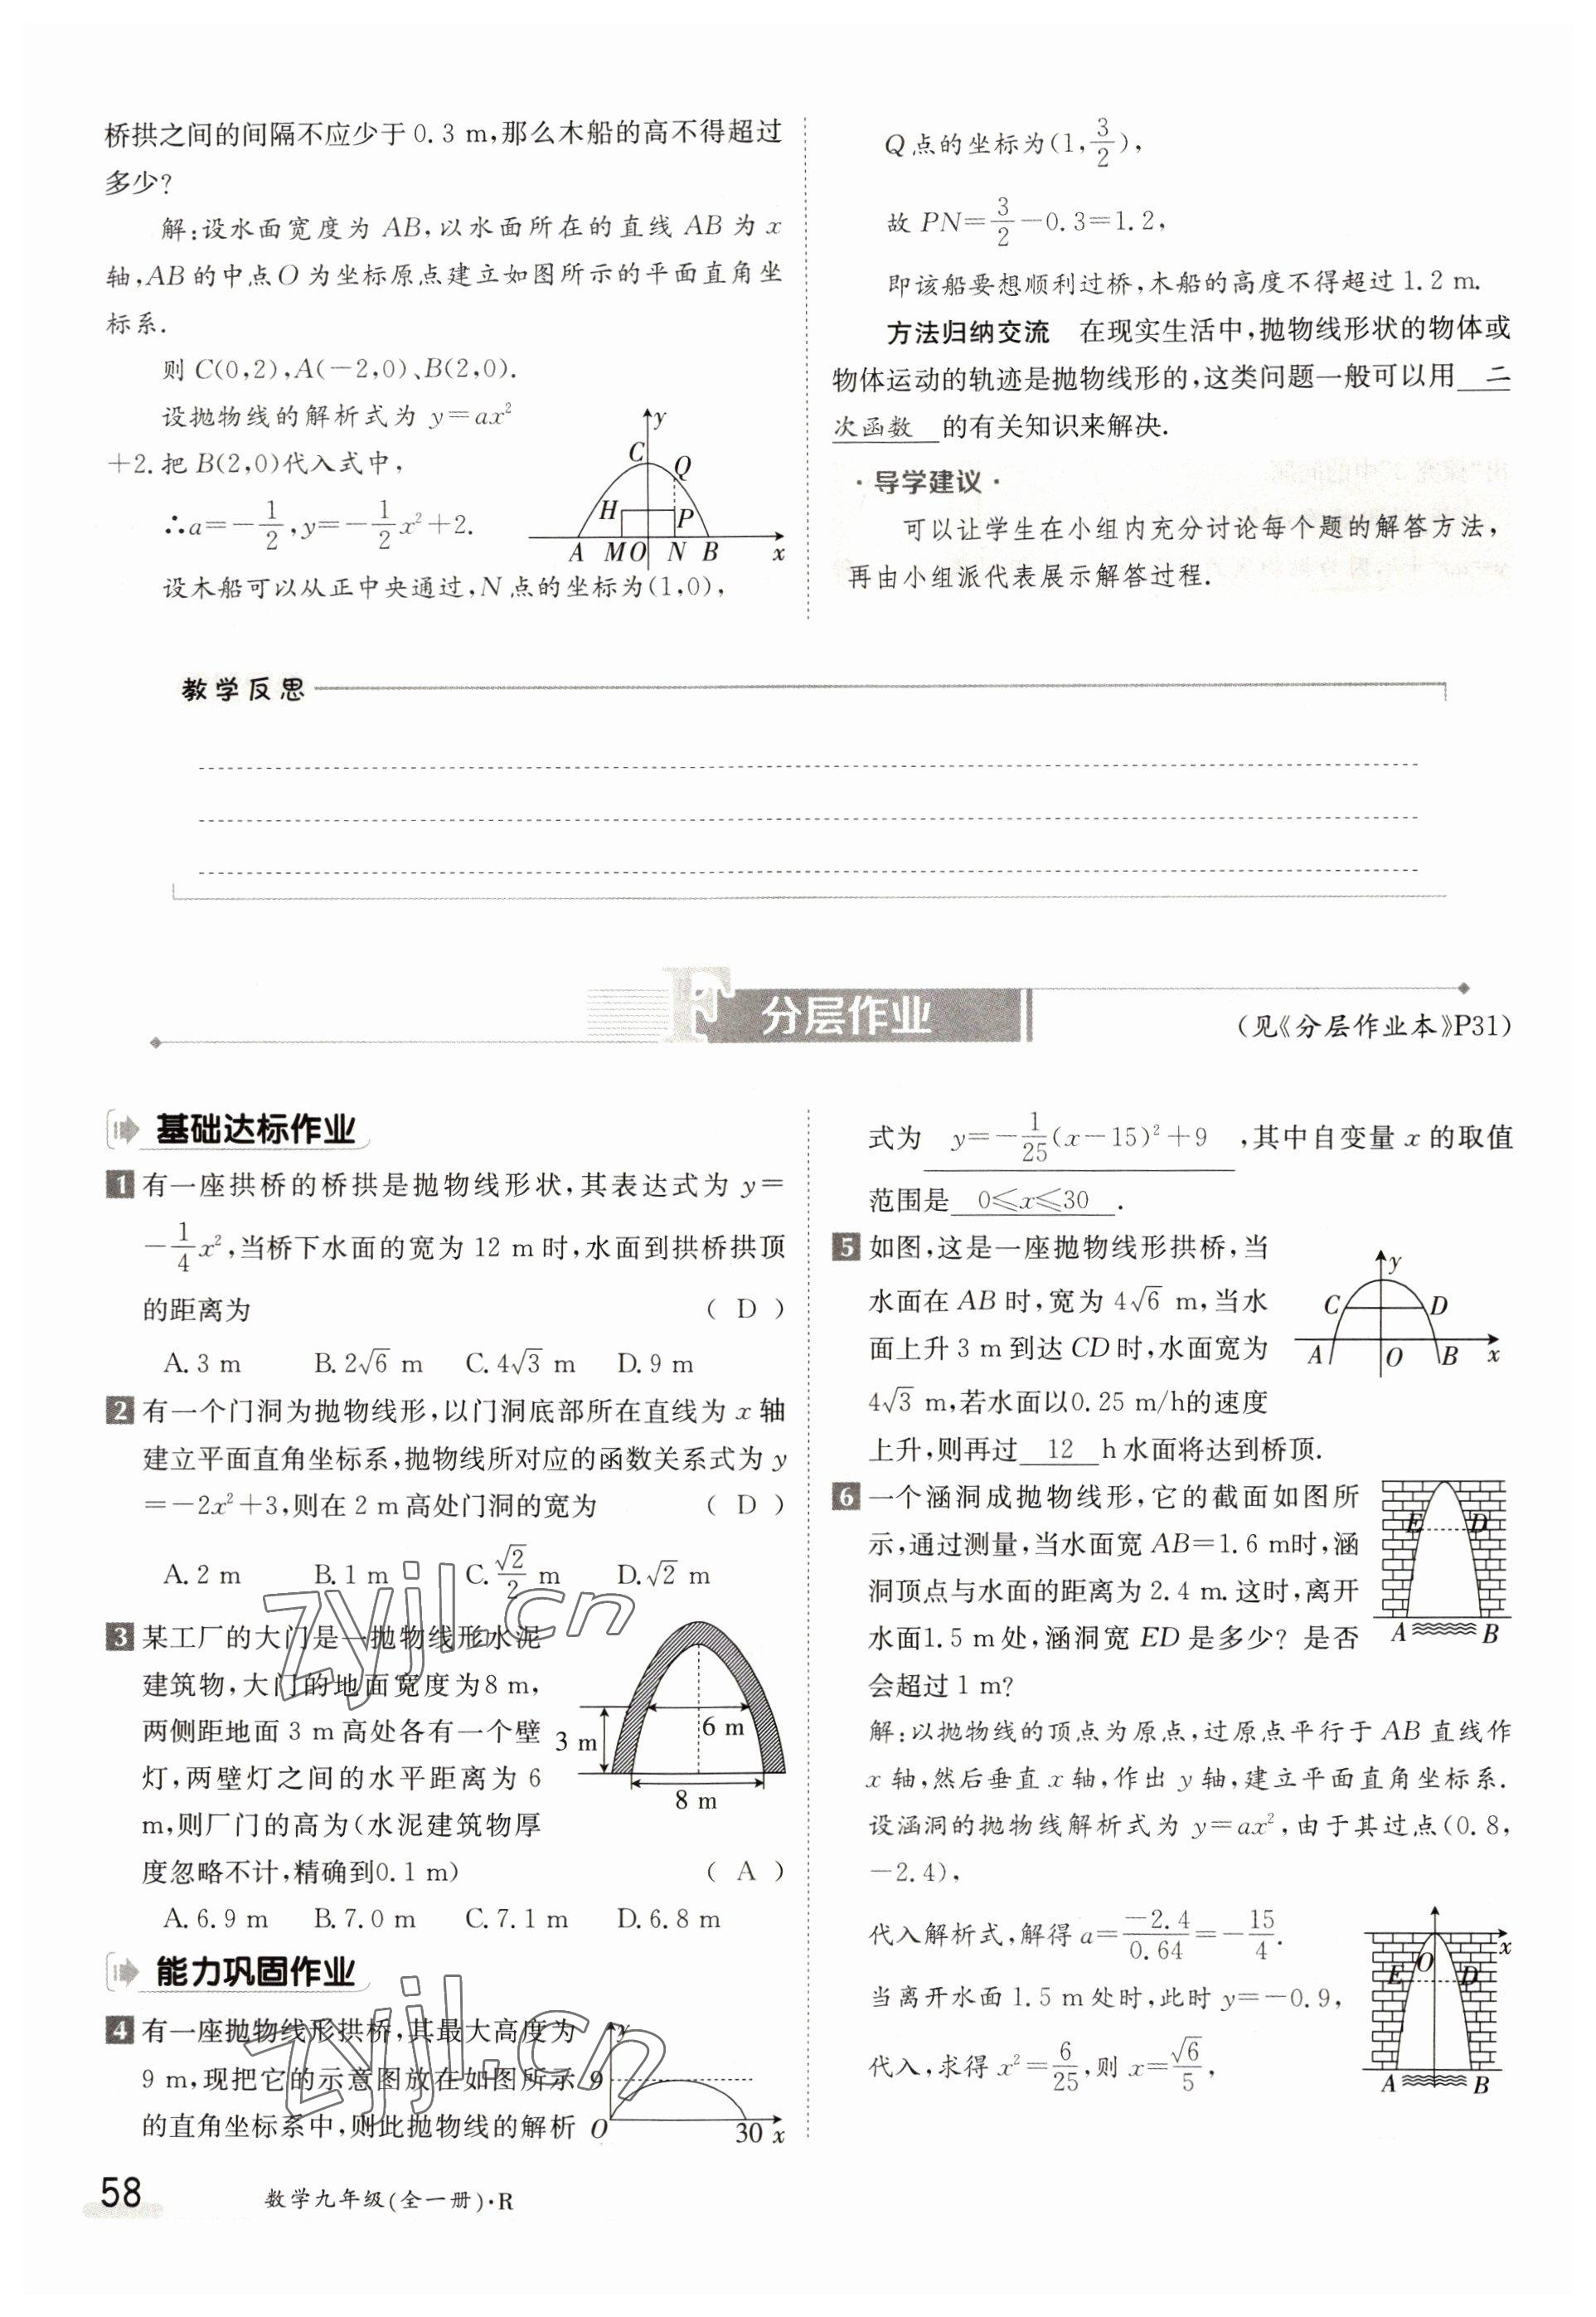 桥拱之间的间隔不应少于0.3 m,那么木船的高不得超过
多少?
解:设水面宽度为 AB,以水面所在的直线 AB 为 x
轴,AB的中点O为坐标原点建立如图所示的平面直角坐
标系.
则 C(0,2),A(-2,0)、B(2,0).
设抛物线的解析式为 y=ax²
+2.把B(2,0)代入式中,
∴a=-1/2,y=-1/2x²+2.
设木船可以从正中央通过,N点的坐标为(1,0),
y
C
Q
H
P
A M O N B x
Q点的坐标为(1,3/2),
故 PN=3/2-0.3=1.2,
即该船要想顺利过桥,木船的高度不得超过1.2 m.
方法归纳交流 在现实生活中,抛物线形状的物体或
物体运动的轨迹是抛物线形的,这类问题一般可以用 二
次函数 的有关知识来解决.
·导学建议·
可以让学生在小组内充分讨论每个题的解答方法,
再由小组派代表展示解答过程.
教学反思
F 分层作业
(见《分层作业本》P31)
基础达标作业
1 有一座拱桥的桥拱是抛物线形状,其表达式为 y=
-1/4x²,当桥下水面的宽为 12 m 时,水面到拱桥拱顶
的距离为 ( D )
A.3 m B.2√6 m C.4√3 m D.9 m
2 有一个门洞为抛物线形,以门洞底部所在直线为 x 轴
建立平面直角坐标系,抛物线所对应的函数关系式为 y
=-2x²+3,则在 2 m 高处门洞的宽为 ( D )
A.2 m B.1 m C.√2/2 m D.√2 m
3 某工厂的大门是一抛物线形水泥
建筑物,大门的地面宽度为8 m,
两侧距地面 3 m 高处各有一个壁
灯,两壁灯之间的水平距离为 6
m,则厂门的高为(水泥建筑物厚
度忽略不计,精确到0.1 m) ( A )
A.6.9 m B.7.0 m C.7.1 m D.6.8 m
3 m
6 m
8 m
能力巩固作业
4 有一座抛物线形拱桥,其最大高度为
9 m,现把它的示意图放在如图所示
的直角坐标系中,则此抛物线的解析
y
9
O 30 x
式为 y=-1/25(x-15)²+9 ,其中自变量 x 的取值
范围是 0≤x≤30 .
5 如图,这是一座抛物线形拱桥,当
水面在 AB 时,宽为 4√6 m,当水
面上升 3 m 到达 CD 时,水面宽为
4√3 m,若水面以0.25 m/h的速度
上升,则再过 12 h 水面将达到桥顶.
y
C D
A O B x
6 一个涵洞成抛物线形,它的截面如图所
示,通过测量,当水面宽 AB=1.6 m时,涵
洞顶点与水面的距离为 2.4 m.这时,离开
水面1.5 m 处,涵洞宽 ED 是多少?是否
会超过 1 m?
E D
A B
解:以抛物线的顶点为原点,过原点平行于 AB 直线作
x 轴,然后垂直 x 轴,作出 y 轴,建立平面直角坐标系.
设涵洞的抛物线解析式为 y=ax²,由于其过点(0.8,
-2.4),
代入解析式,解得 a=-2.4/0.64=-15/4.
当离开水面 1.5 m 处时,此时 y=-0.9,
代入,求得 x²=6/25,则 x=√6/5,
x
O
E D
A B
zyjl.cn
zyjl.cn
58
数学九年级(全一册)·R